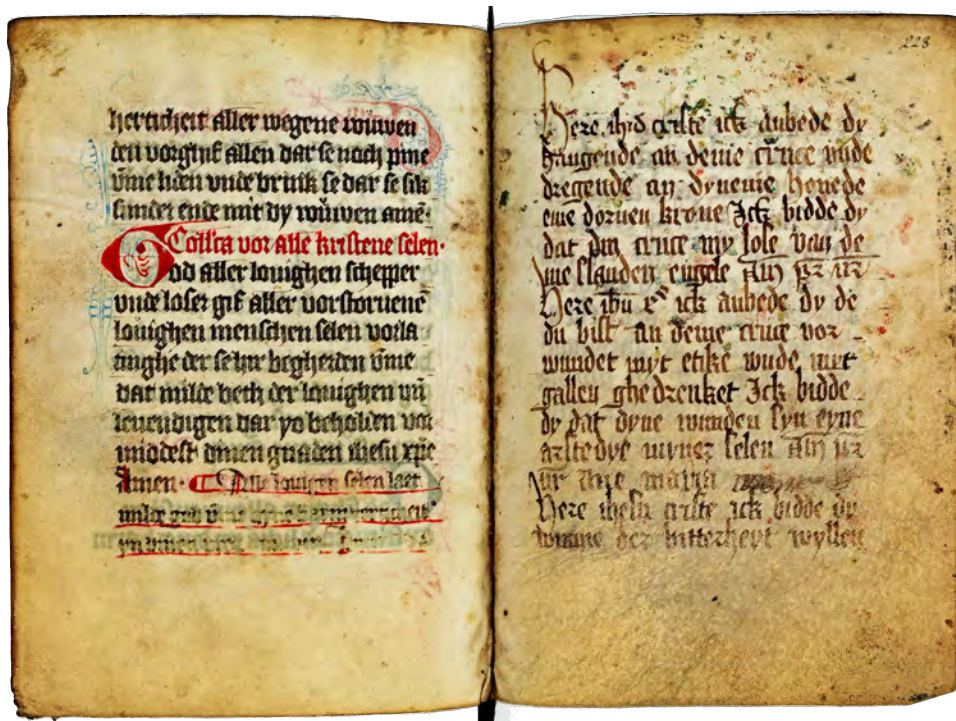 aller wegene wuwen
allen dar se noch pine
vnde bruik se dar se sik
sunder ende mit dy wuwen amē·
Collcta vor alle kristene selen·
God aller louighen schepper
vnde loser gif aller vorstoruenē
louighen menschen selen vorla
tinghe der se hir begherden
dat milde beth der louighen vn̄
leuendigen dar yo beholden vor
middest dinen gnaden ihesu xp̄e
Amen· Alle louigen selen laet
milde god
228
Here ihū criste ick anbede dy
hangende an deme cruce vnde
dregende an dyneme houede
eyne dornen krone Ick bidde dy
dat din cruce my lose van de
me slanden engele Am̄ pr̄ nr̄
Here ihū xᵉ ick anbede dy de
du bist an deme cruce vor
wundet myt etike vnde met
gallen ghedrenket Ick bidde
dy dat dyne wunden syn eyne
arstedye myner selen Am̄ pr̄
nr̄ Aue maria
Here ihesu criste ick bidde dy
vmme der bitterheyt wyllen